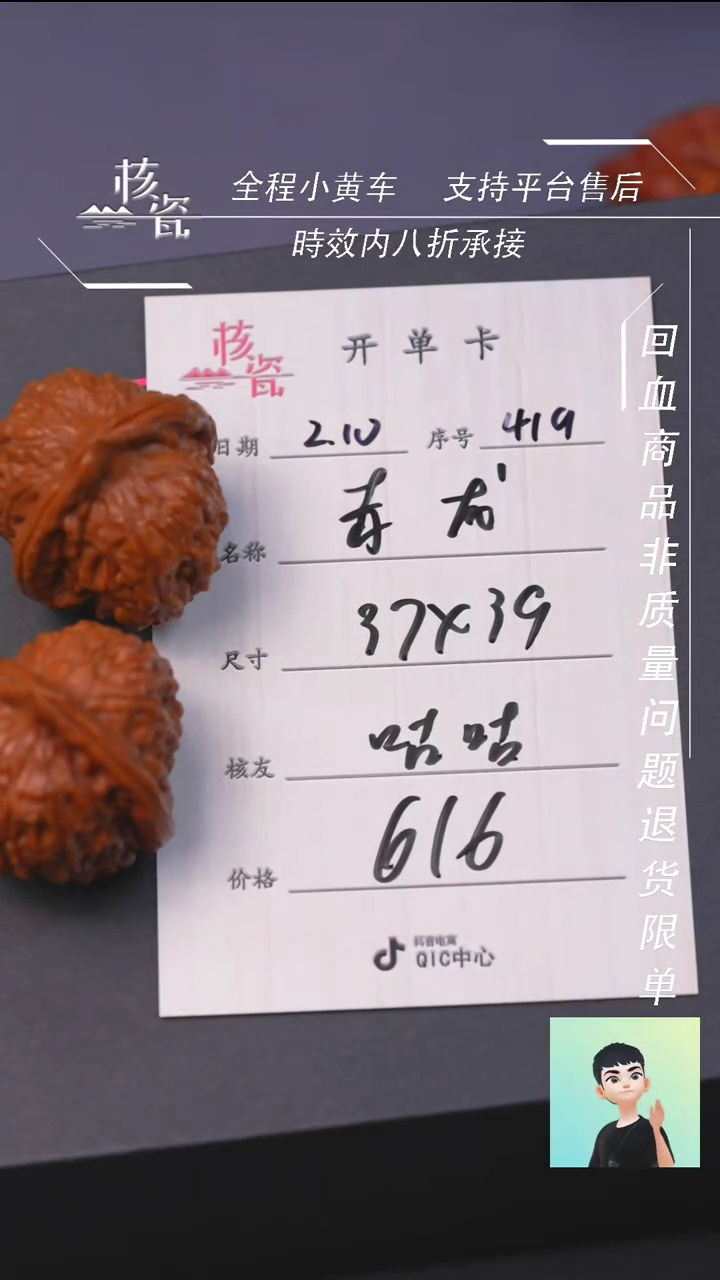 核瓷
全程小黄车 支持平台售后
時效内八折承接
回血商品非质量问题退货限单
核瓷
开单卡
日期 2.10 序号 419
名称
尺寸 37x39
核友 咕咕
价格 616
抖音电商
QIC中心